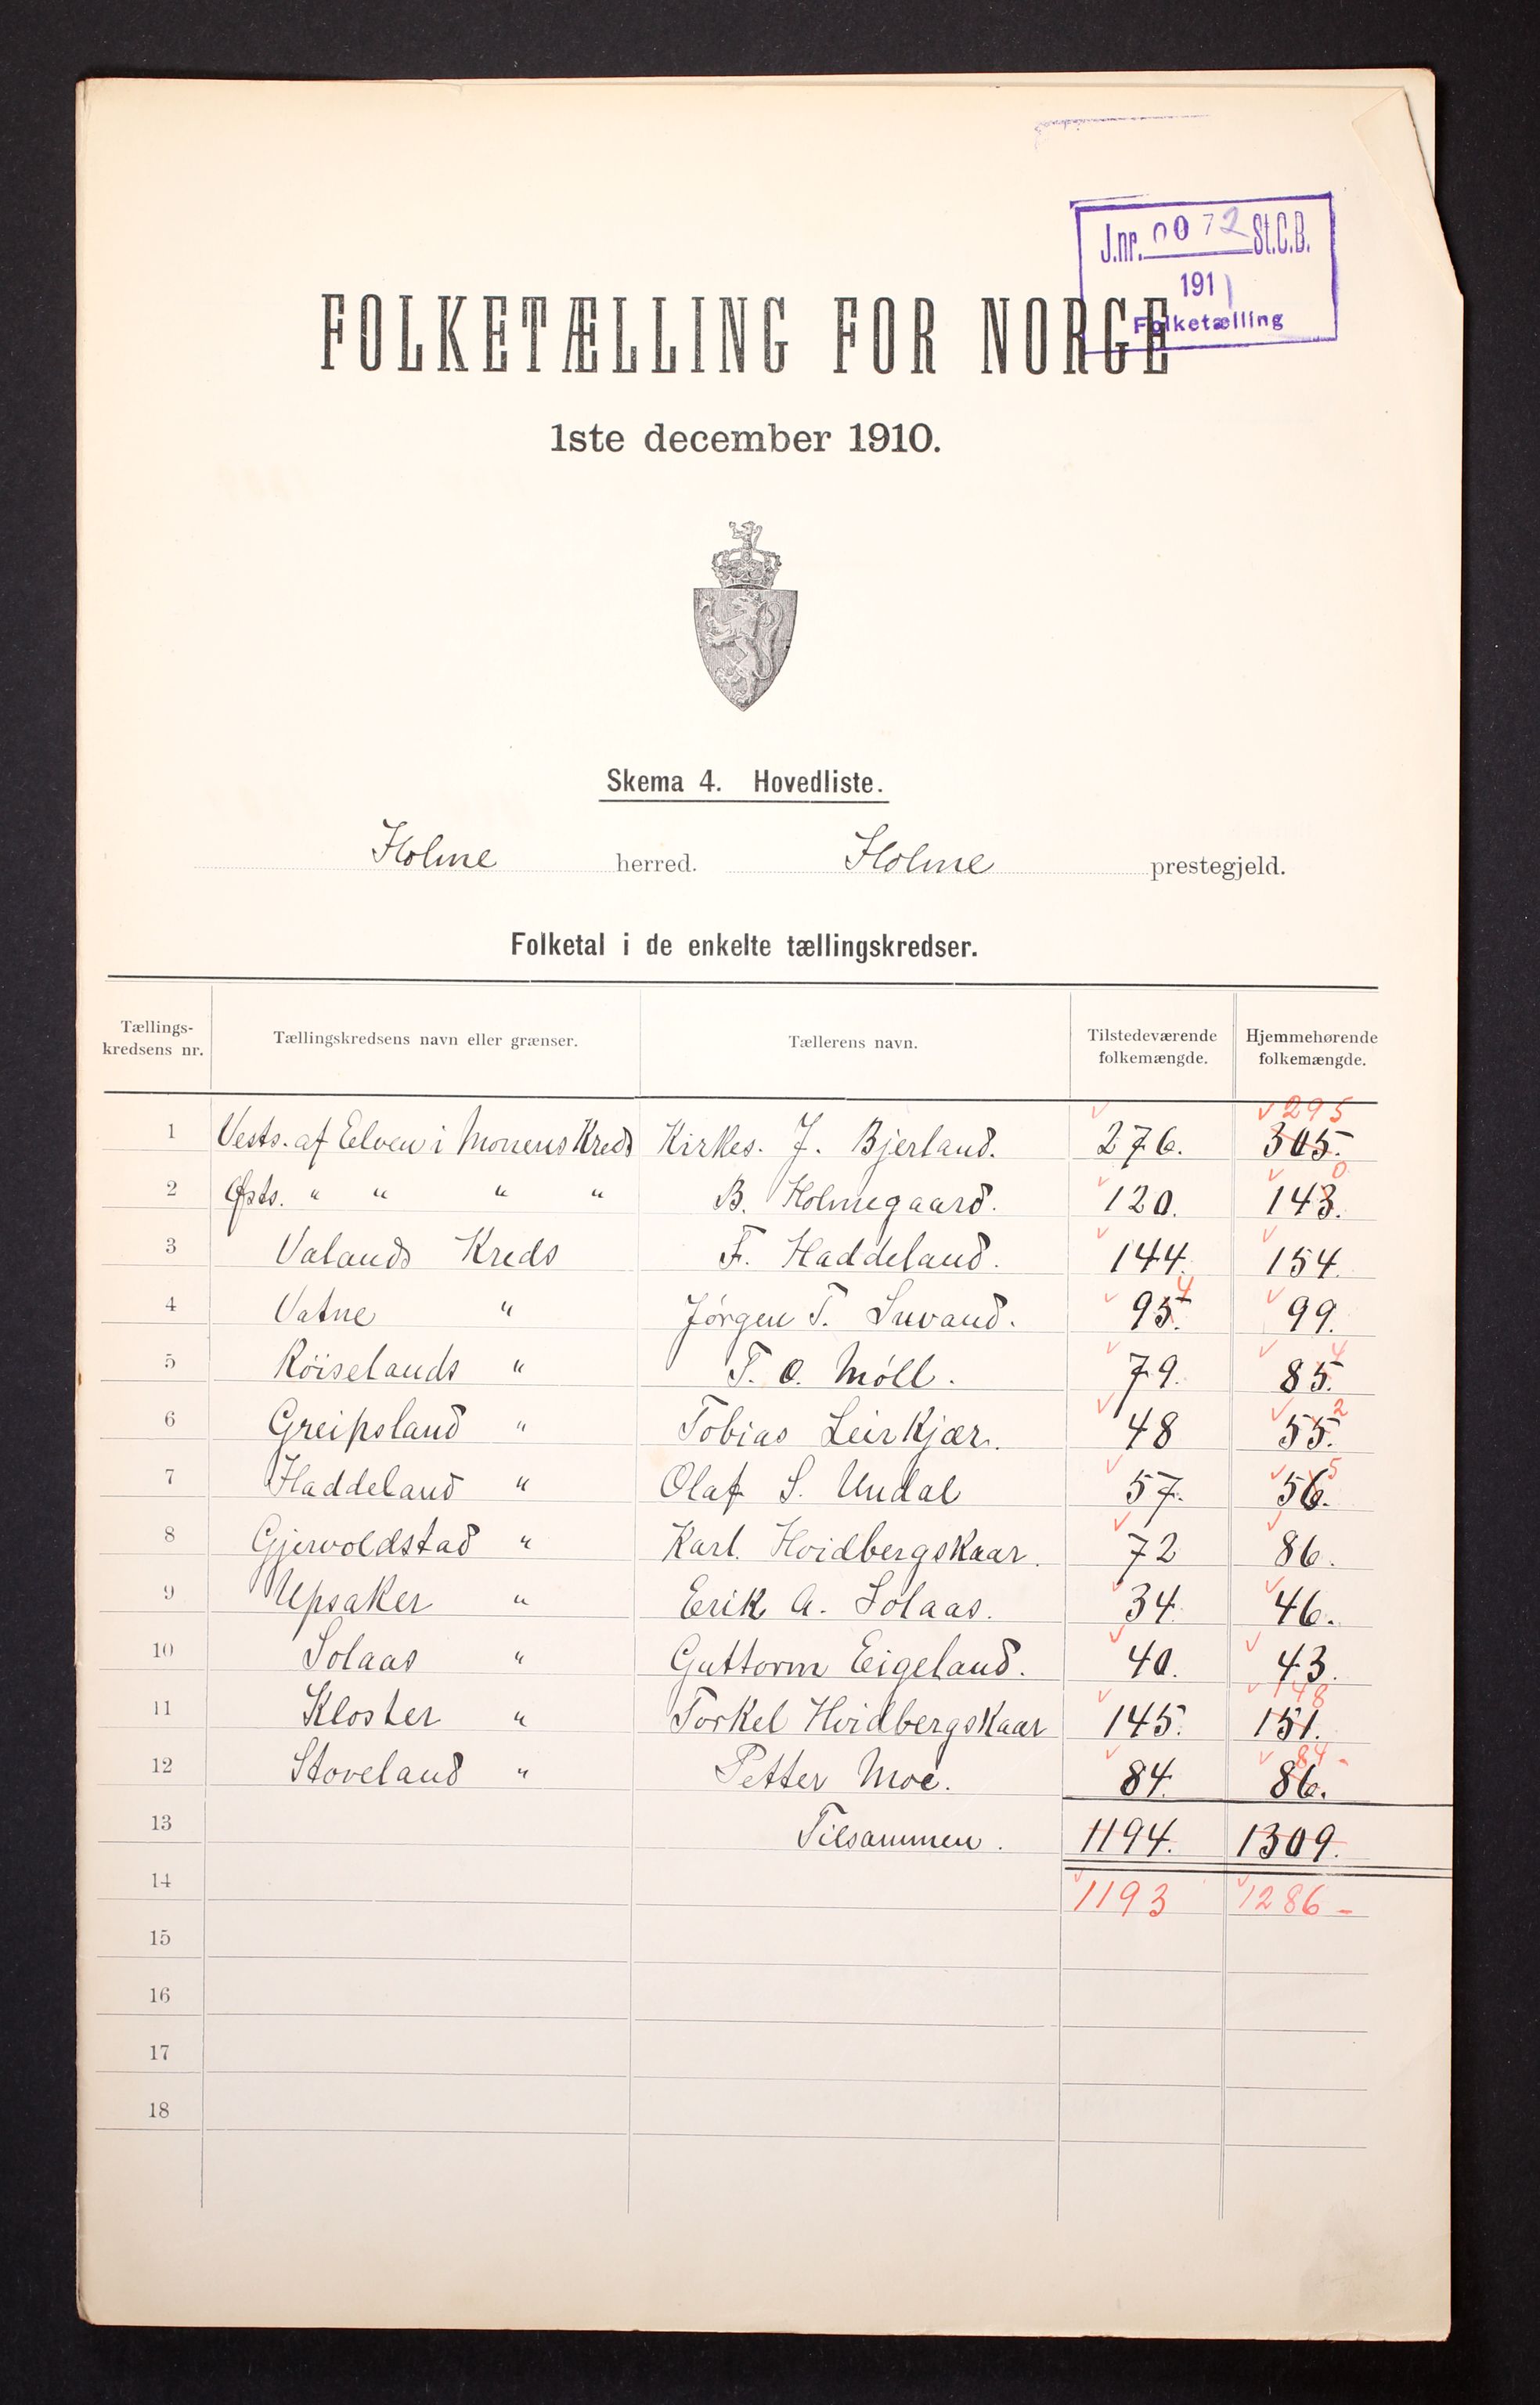 J.nr. 0072 St.C.B.
191
Folketælling
FOLKETÆLLING FOR NORGE
1ste december 1910.
Skema 4. Hovedliste.
Holme herred. Holme prestegjeld.
Folketal i de enkelte tællingskredser.
Tællings-kredsens nr. Tællingskredsens navn eller grænser. Tællerens navn. Tilstedeværende folkemængde. Hjemmehørende folkemængde.
1 Vests. af Elven i Monens Kreds Kirkes. J. Bjerland. 276. 305. 295
2 Østs. " " " " B. Holmegaard. 120. 143. 0
3 Valands Kreds F. Haddeland. 144. 154.
4 Vatne " Jørgen T. 95. 4 99.
5 Röiselands " T. O. Möll. 79. 85. 4
6 Greipsland " Tobias Leirkjær. 48 55. 2
7 Haddeland " Olaf S. Undal 57. 56. 5
8 Gjervoldstad " Karl. Hvidbergskaar. 72 86.
9 Upsaker " Erik A. Solaas. 34. 46.
10 Solaas " Guttorm Eigeland. 40. 43.
11 Kloster " Torkel Hvidbergskaar 145. 151. 148
12 Stoveland " Petter Moe. 84. 86. 84 -
13 Tilsammen. 1194. 1309.
14 1193 1286 -
15
16
17
18